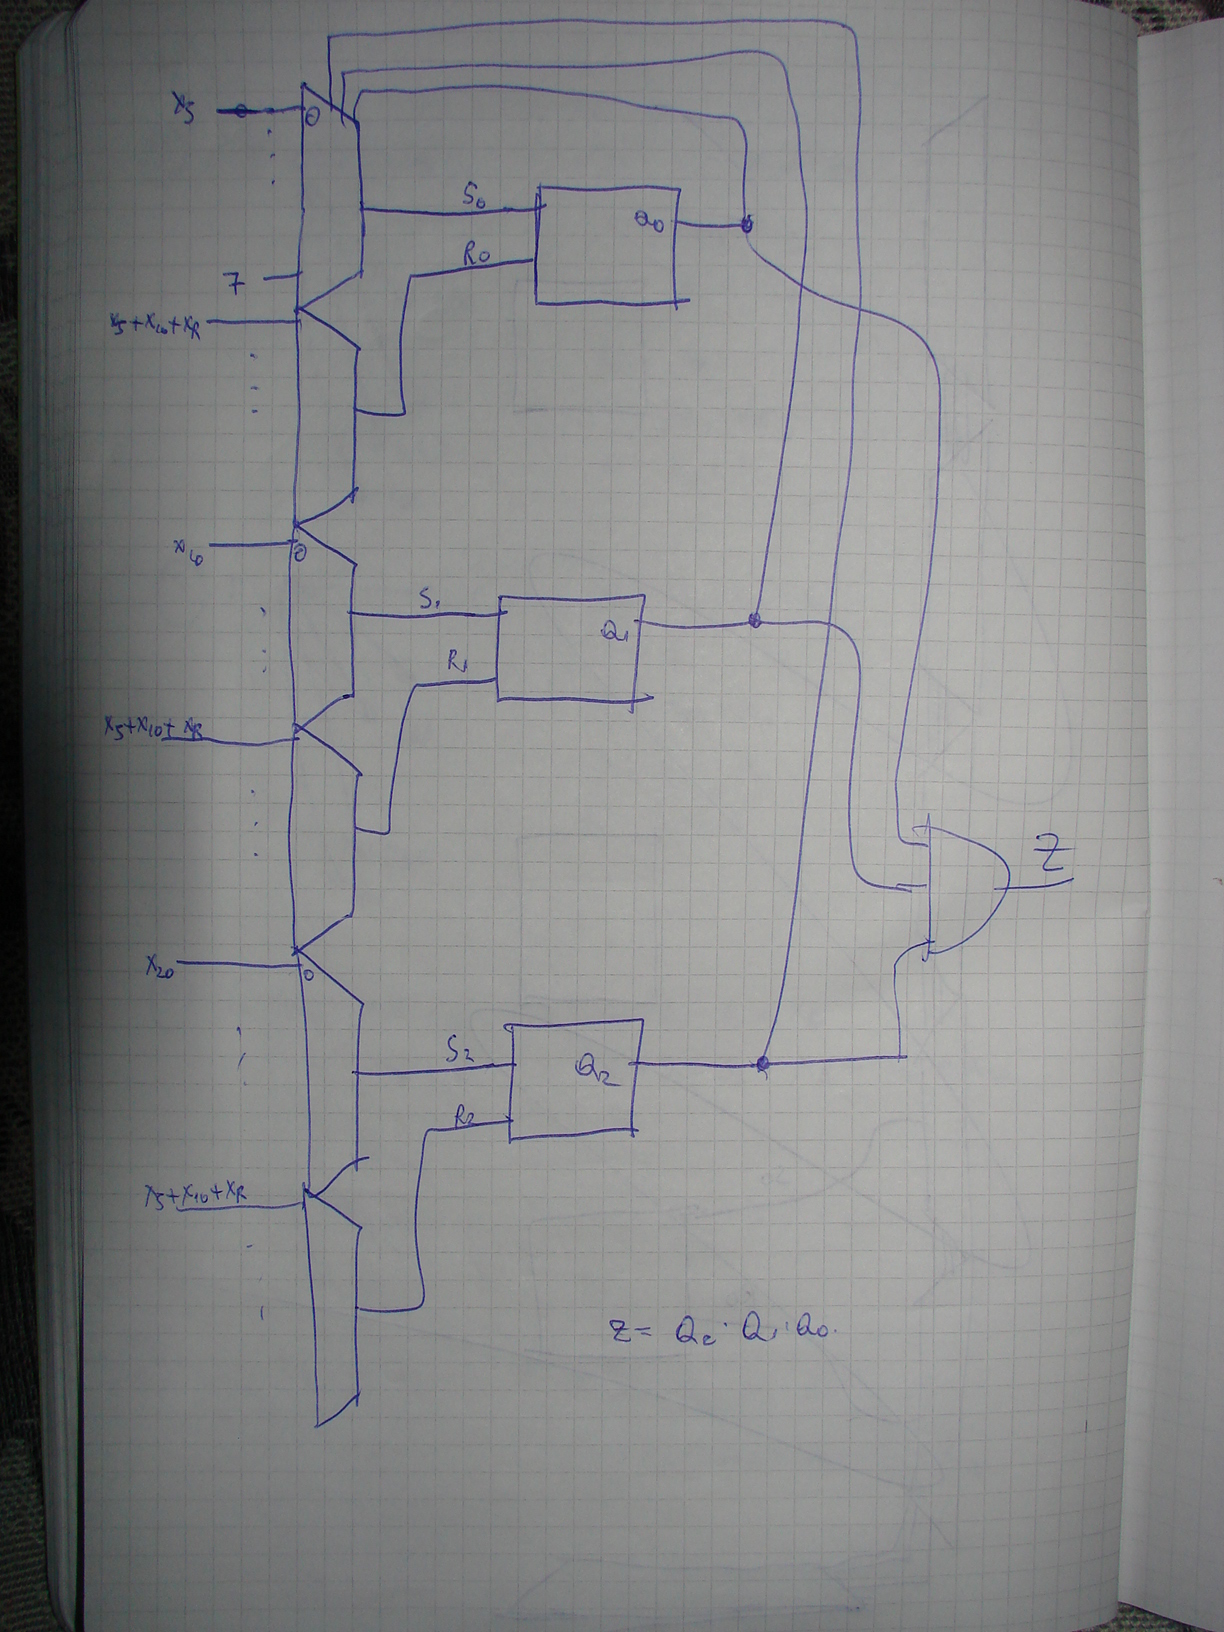 x₅
0
S₀
Q₀
R₀
7
x₅+x₁₀+x_R
x₁₀
0
S₁
Q₁
R₁
x₅+x₁₀+x_R
Z
x₂₀
0
S₂
Q₂
R₂
x₅+x₁₀+x_R
Z = Q₂ · Q₁ · Q₀.